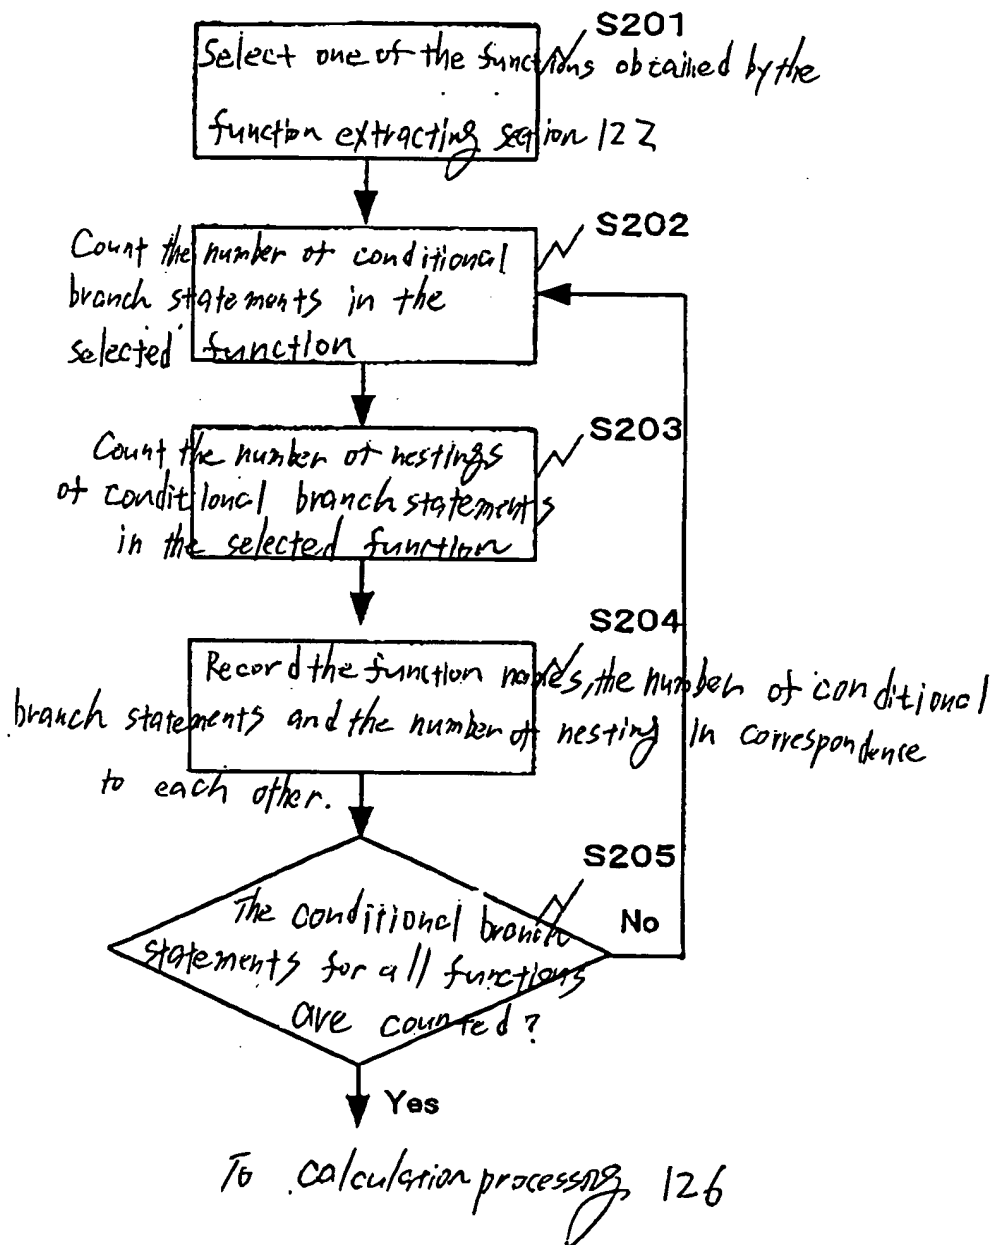 S201
Select one of the functions obtained by the
function extracting section 122
S202
Count the number of conditional
branch statements in the
selected function
S203
Count the number of nestings
of conditional branch statements
in the selected function
S204
Record the function names, the number of conditional
branch statements and the number of nesting in correspondence
to each other.
S205
The conditional branch
statements for all functions
are counted?
No
Yes
To calculation processing 126